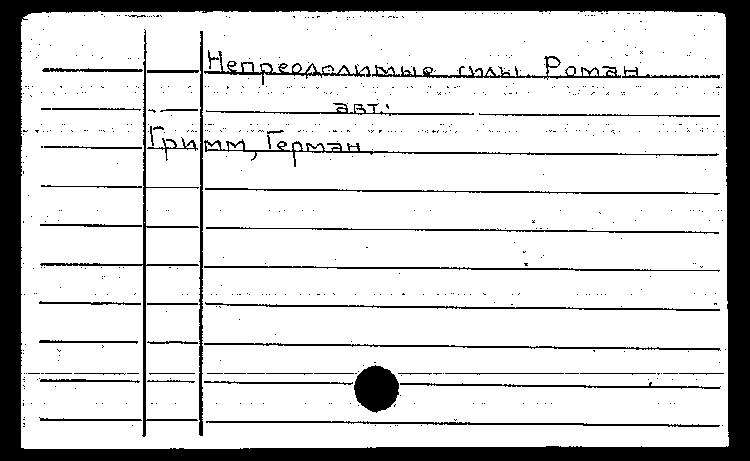 Непреодолимые силы. Роман.
авт.:
Гримм, Герман.